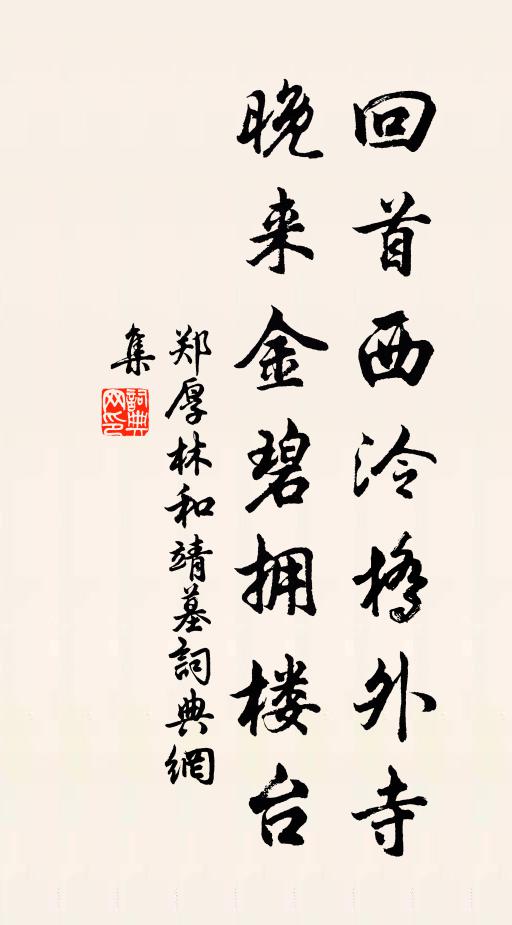 回首西泠橋外寺
晚来金碧拥楼台
郑厚林和靖墓詞典網
集
詞典网印